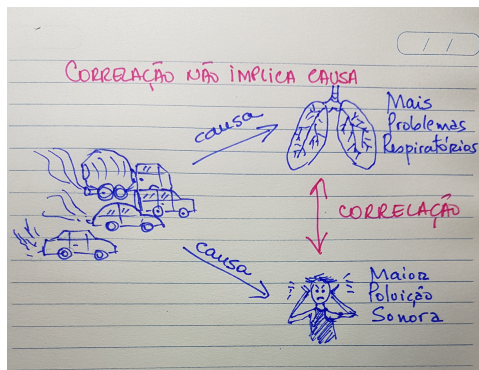 / /
CORRELAÇÃO NÃO IMPLICA CAUSA
causa
Mais
Problemas
Respiratórios
CORRELAÇÃO
causa
Maior
Poluição
Sonora